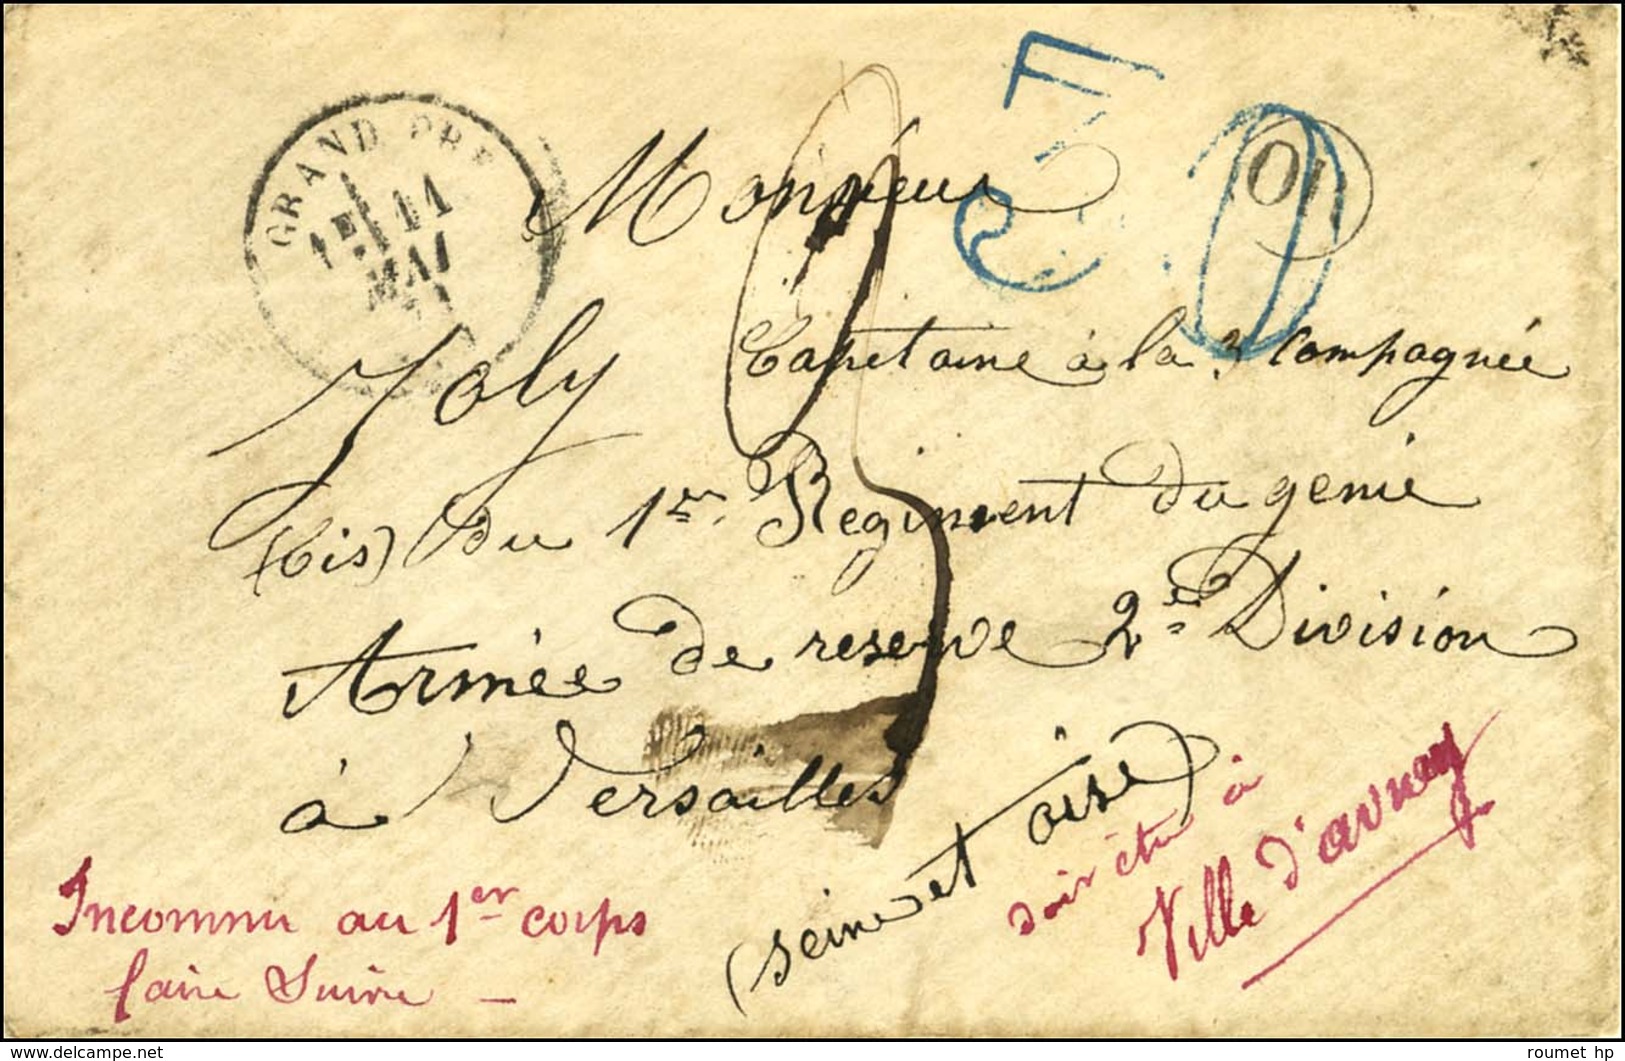 GRAND PRE
1E 11
MAI
71
OR
Monsieur
Joly Capitaine à la 3 Compagnie
(bis) du 1er Regiment du genie
Armée de reserve 2e Division
à Versailles
(seine et oise)
Inconnu au 1er corps
faire Suivre —
doit être à
Ville d'avray
roumet hp
www.delcampe.net